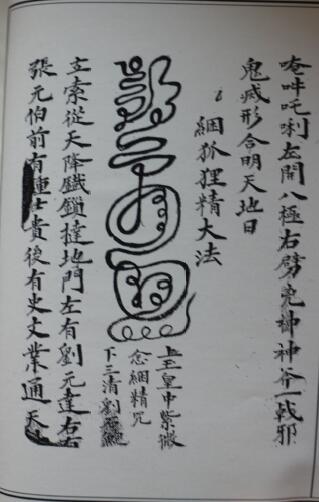 唵吽吒唎左開八極右劈兇神神斧一戟邪
鬼滅形合明天地日
綑狐狸精大法
上玉皇中紫微
念綑精咒
下三清劉
立索從天降鐵鎖撻地門左有劉元達右有
張元伯前有鍾仕貴後有史文業通天